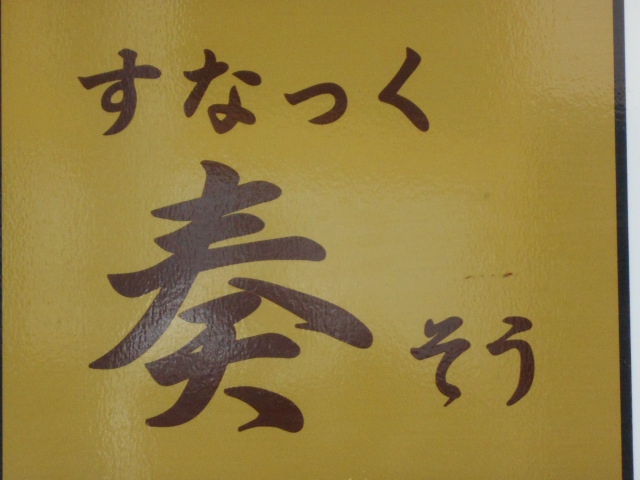 すなっく
奏
そう